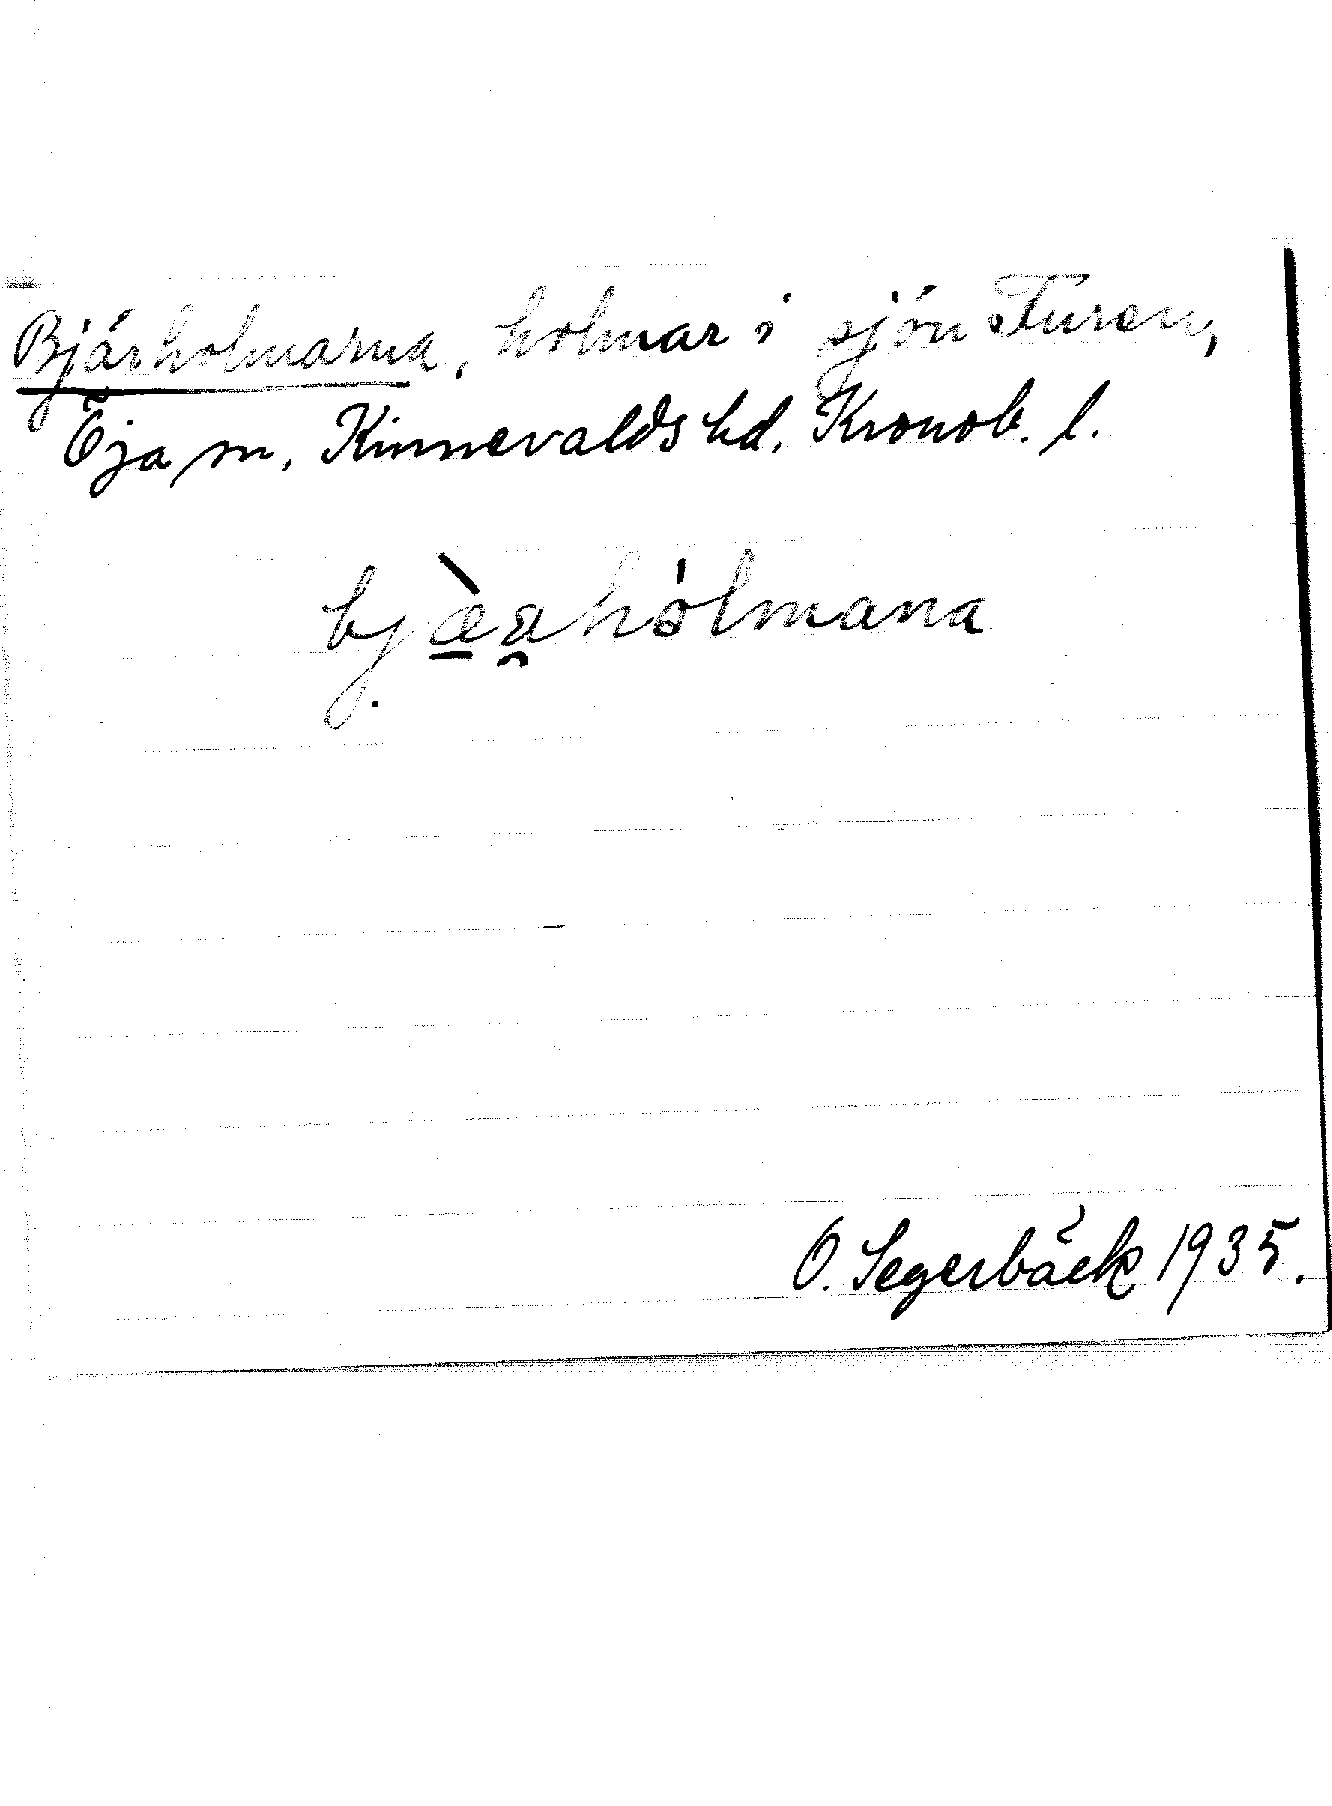 Bjärholmarna, holmar i sjön Furen,
Öja sn, Kinnevalds hd. Kronob. l.
bjæ̠̀a̯hólmana
O. Segerbäck 1935.